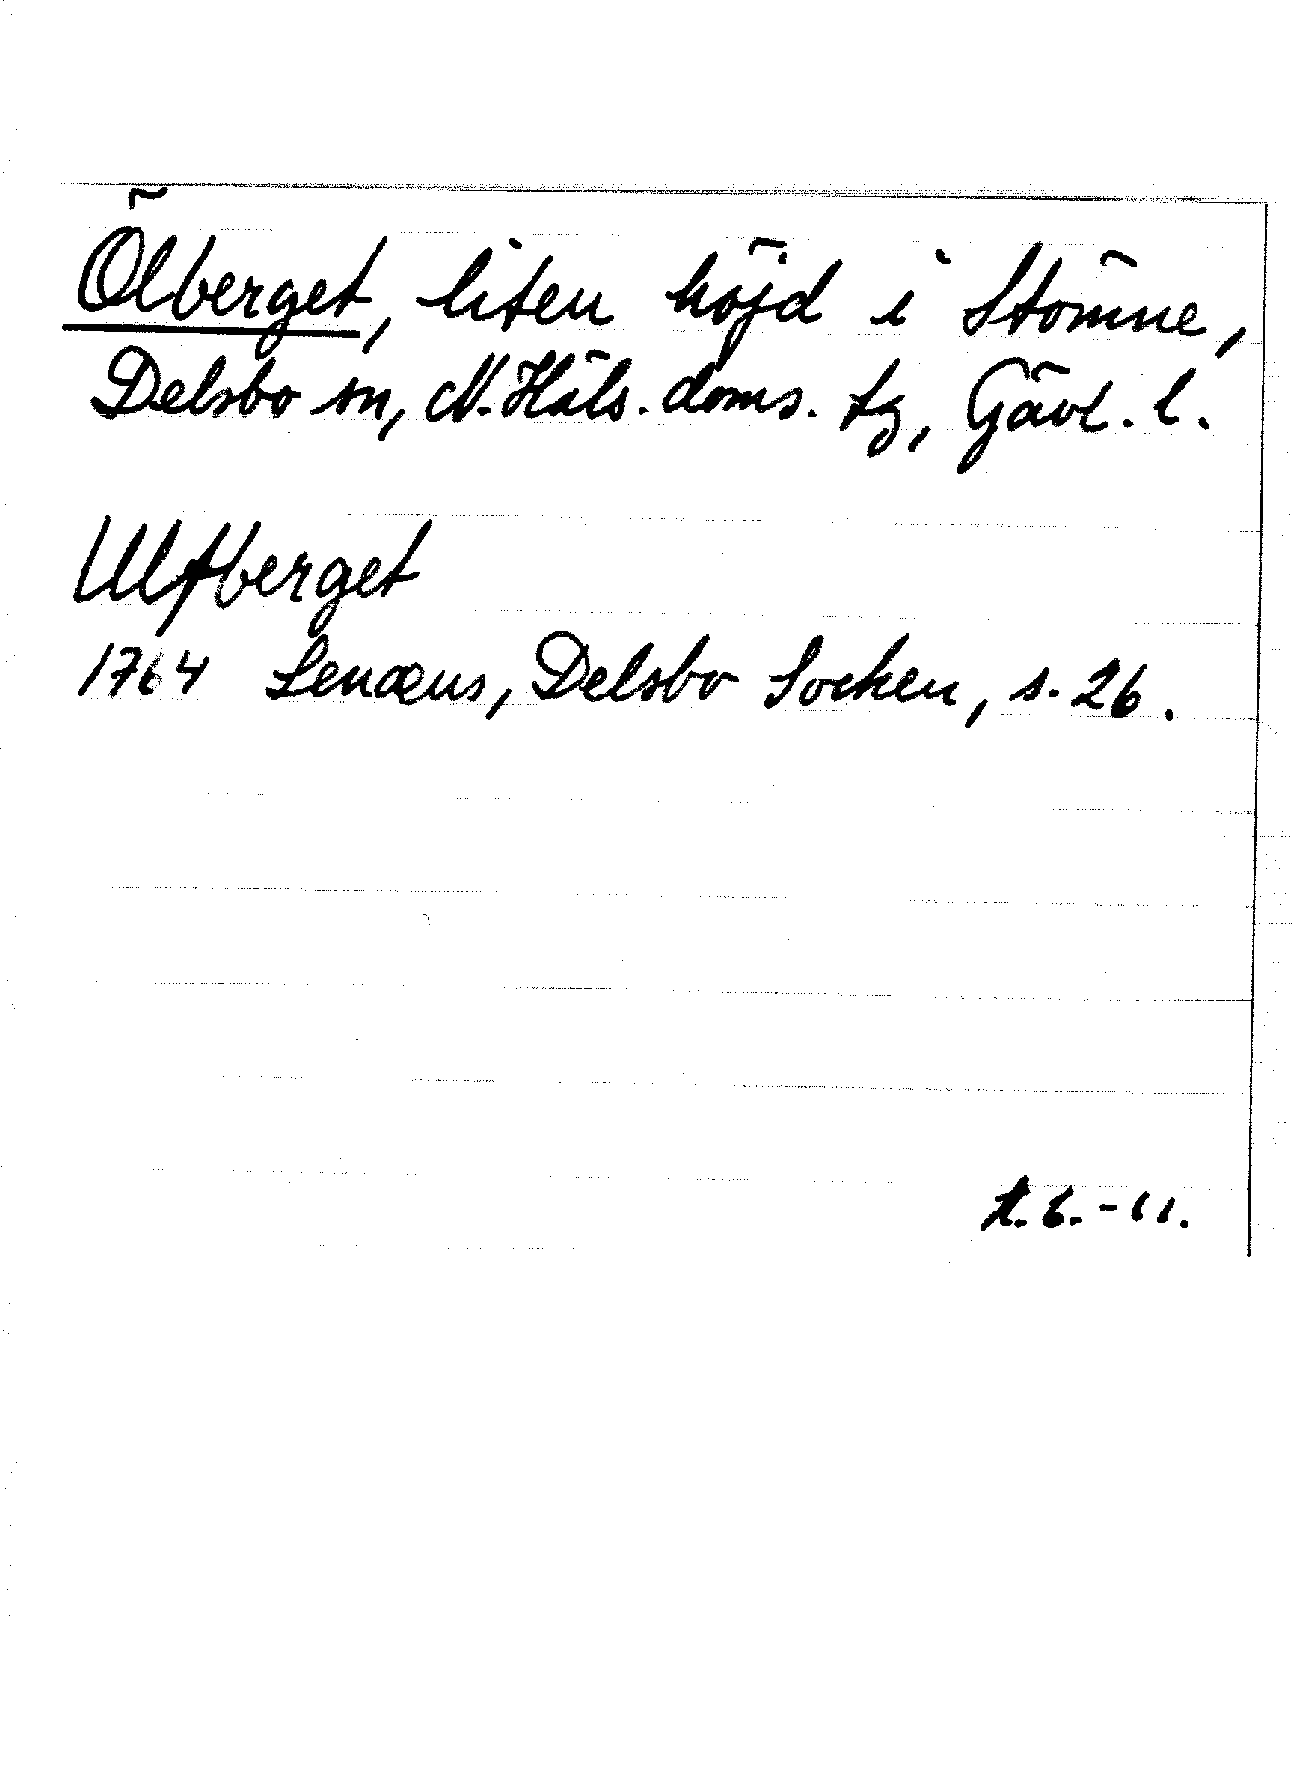 Ölberget, liten höjd i Stömne,
Delsbo sn, N. Häls. doms. tg, Gävl. l.
Ulfberget
1764 Lenæus, Delsbo Socken, s. 26.